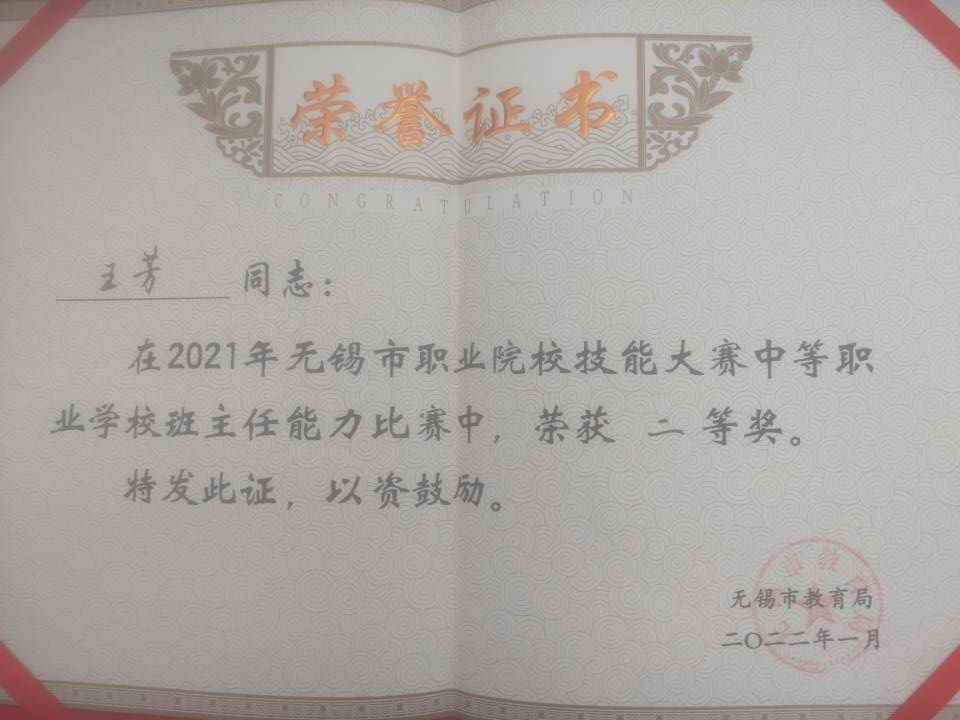 荣誉证书
CONGRATULATION
王芳 同志：
在2021年无锡市职业院校技能大赛中等职
业学校班主任能力比赛中，荣获 二 等奖。
特发此证，以资鼓励。
无锡市教育局
二〇二二年一月